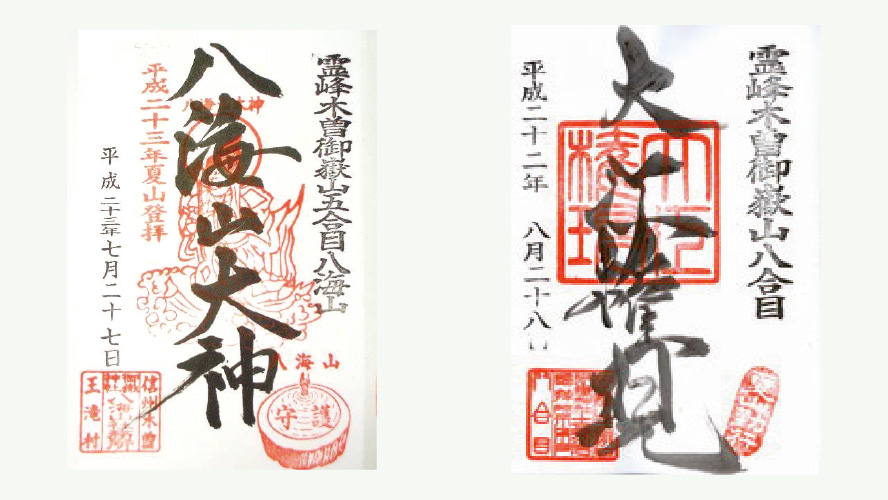 霊峰木曽御嶽山五合目八海山
八海山大神
平成二十三年夏山登拝
平成二十三年七月二十七日
八海山
守護
信州木曽
王滝村
霊峰木曽御嶽山八合目
大江大権現
平成二十二年 八月二十八
八合目